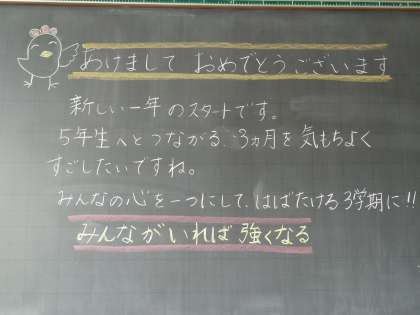 あけまして おめでとうございます
新しい一年のスタートです。
5年生へとつながる、3ヵ月を気もちよく
すごしたいですね。
みんなの心を一つにして、はばたける3学期に!!
みんながいれば強くなる